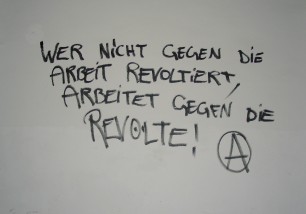 WER NICHT GEGEN DIE
ARBEIT REVOLTIERT,
ARBEITET GEGEN DIE
REVOLTE! Ⓐ